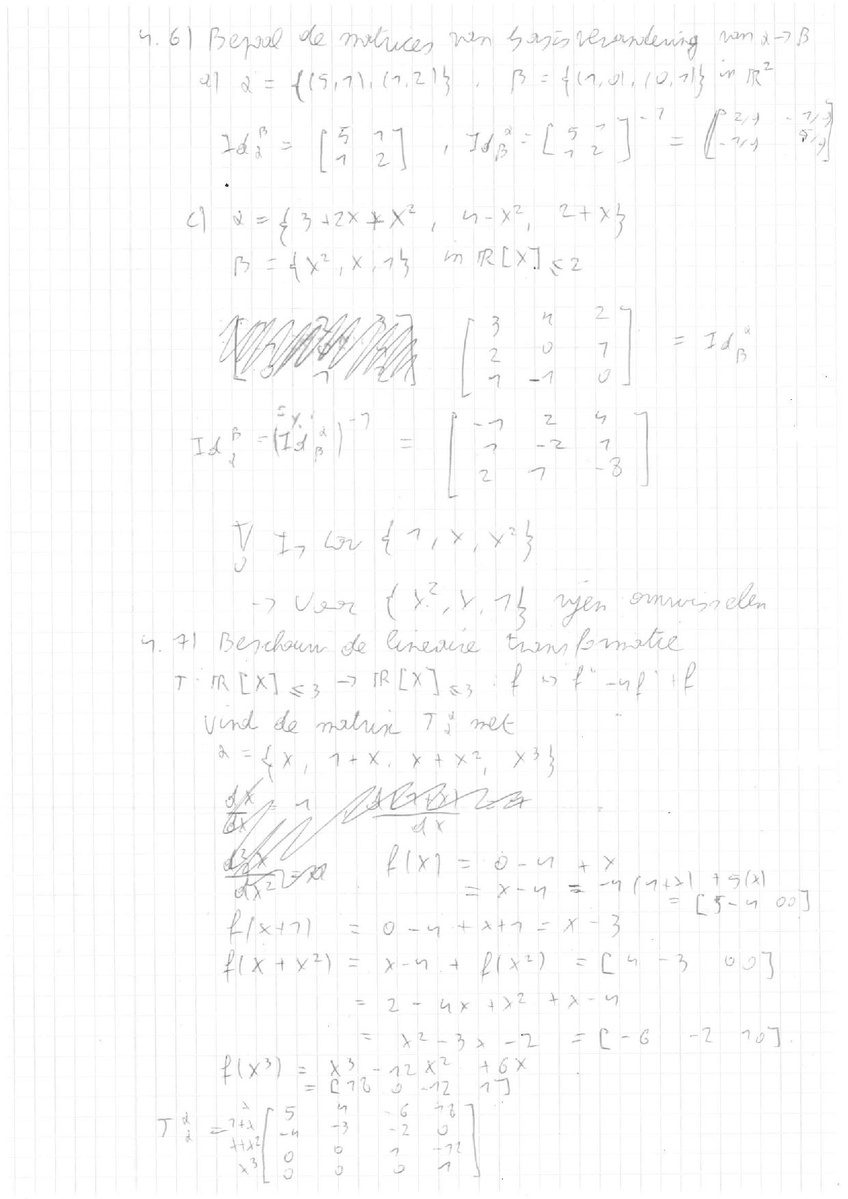 4.6) Bepaal de matrices van basisverandering van α → β
a) α = {(5,1), (1,2)}, β = {(1,0), (0,1)} in ℝ²
Id_α^β = [5 1; 1 2], Id_β^α = [5 1; 1 2]^-1 = [2/9 -1/9; -1/9 5/9]
c) α = {3+2x+x², 4-x², 2+x}
β = {x², x, 1} in ℝ[X]≤2
[3 4 2; 2 0 1; 1 -1 0] = Id_β^α
Id_α^β = (Id_β^α)^-1 = [-1 2 4; 1 -2 1; 2 7 -8]
{1, x, x²}
→ Voor {x², x, 1} rijen omwisselen
4.7) Beschouw de lineaire transformatie
T: ℝ[X]≤3 → ℝ[X]≤3 : f ↦ f'' -4f' + f
Vind de matrix T_α^α met
α = {x, 1+x, x+x², x³}
f(x) = 0-4+x
= x-4 = -4(1+x) + 5(x)
= [5 -4 0 0]
f(x+1) = 0-4+x+1 = x-3
f(x+x²) = x-4 + f(x²) = [4 -3 0 0]
= 2-4x+x²+x-4
= x²-3x-2 = [-6 -2 1 0]
f(x³) = x³-12x²+6x
= [18 0 -12 1]
T_α^α = x 1+x x+x² x³ [5 4 -6 18; -4 -3 -2 0; 0 0 1 -12; 0 0 0 1]